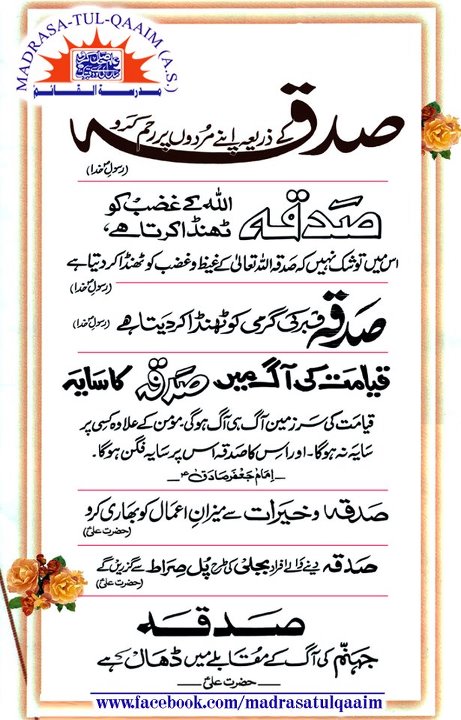 MADRASA-TUL-QAAIM (A.S.)
مدرسة القائم
صدقہ کے ذریعہ اپنے مُردوں پر رحم کرو
(رسولِ خدا)
صَدقہ اللہ کے غضب کو
ٹھنڈا کرتا ھے،
اس میں تو شک نہیں کہ صدقہ اللہ تعالیٰ کے غیظ و غضب کو ٹھنڈا کر دیتا ہے
(رسولِ خدا)
صدقہ قبر کی گرمی کو ٹھنڈا کر دیتا ھے (رسولِ خدا)
قیامت کی آگ میں صدقہ کا سایہ
قیامت کی سرزمین آگ ہی آگ ہوگی، مؤمن کے علاوہ کسی پر
سایہ نہ ہوگا۔ اور اس کا صدقہ اس پر سایہ فگن ہوگا۔
امام جعفر صادقؑ
صدقہ و خیرات سے میزانِ اعمال کو بھاری کرو
(حضرت علیؑ)
صدقہ دینے والے افراد بجلی کی طرح پُل صِراط سے گزریں گے
(حضرت علیؑ)
صَدقہ
جہنّم کی آگ کے مقابلے میں ڈھال ہے
حضرت علیؑ
www.facebook.com/madrasatulqaaim